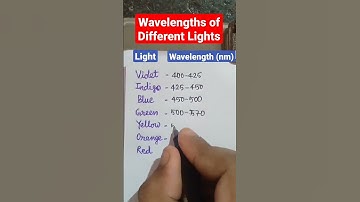 Wavelengths of
Different Lights
Light Wavelength (nm)
Violet - 400-425
Indigo - 425-450
Blue - 450-500
Green - 500-570
Yellow -
Orange -
Red